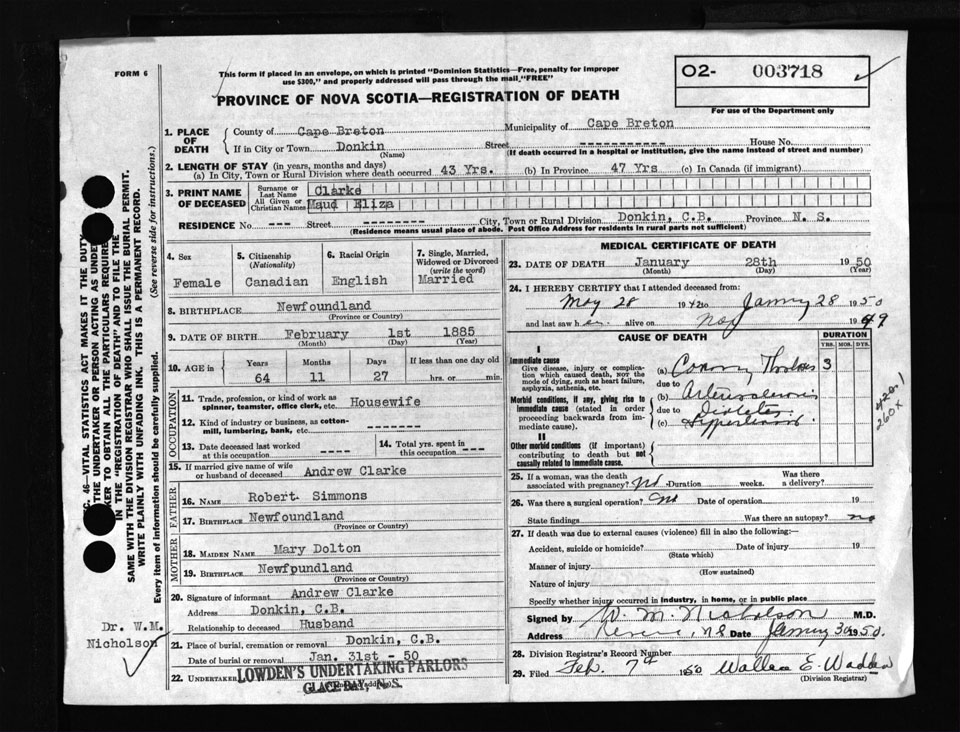 FORM 6
This form if placed in an envelope, on which is printed "Dominion Statistics—Free, penalty for improper
use $300," and properly addressed will pass through the mail "FREE"
O2- 003718
PROVINCE OF NOVA SCOTIA—REGISTRATION OF DEATH
For use of the Department only
1. PLACE OF DEATH
County of Cape Breton Municipality of Cape Breton
If in City or Town Donkin Street ----------- House No.
(Name) (If death occurred in a hospital or institution, give the name instead of street and number)
2. LENGTH OF STAY (in years, months and days)
(a) In City, Town or Rural Division where death occurred 43 Yrs. (b) In Province 47 Yrs (c) In Canada (if immigrant)
3. PRINT NAME OF DECEASED
Surname or Last Name Clarke
All Given or Christian Names Maud Eliza
RESIDENCE No. --- Street ---------- City, Town or Rural Division Donkin, C.B. Province N. S.
(Residence means usual place of abode. Post Office Address for residents in rural parts not sufficient)
4. Sex Female
5. Citizenship (Nationality) Canadian
6. Racial Origin English
7. Single, Married, Widowed or Divorced (write the word) Married
8. BIRTHPLACE Newfoundland
(Province or Country)
9. DATE OF BIRTH February 1st 1885
(Month) (Day) (Year)
10. AGE in Years 64 Months 11 Days 27 If less than one day old hrs. or min.
OCCUPATION
11. Trade, profession, or kind of work as spinner, teamster, office clerk, etc. Housewife
12. Kind of industry or business, as cotton-mill, lumbering, bank, etc. ----
13. Date deceased last worked at this occupation ----
14. Total yrs. spent in this occupation ----
15. If married give name of wife or husband of deceased Andrew Clarke
FATHER
16. NAME Robert Simmons
17. BIRTHPLACE Newfoundland
(Province or Country)
MOTHER
18. MAIDEN NAME Mary Dolton
19. BIRTHPLACE Newfpundland
(Province or Country)
20. Signature of informant Andrew Clarke
Address Donkin, C.B.
Relationship to deceased Husband
21. Place of burial, cremation or removal Donkin, C.B.
Date of burial or removal Jan. 31st - 50
22. UNDERTAKER LOWDEN'S UNDERTAKING PARLORS
GLACE BAY, N.S.
MEDICAL CERTIFICATE OF DEATH
23. DATE OF DEATH January 28th 1950
(Month) (Day) (Year)
24. I HEREBY CERTIFY that I attended deceased from:
May 28 1942 to 28 1950
and last saw h er alive on Nov 1949
CAUSE OF DEATH
DURATION
YRS. MOS. DYS.
I
Immediate cause
Give disease, injury or complication which caused death, not the mode of dying, such as heart failure, asphyxia, asthenia, etc.
(a) 3
due to
Morbid conditions, if any, giving rise to immediate cause (stated in order proceeding backwards from immediate cause).
(b) Arteriosclerosis
due to Diabetes
(c)
II
Other morbid conditions (if important) contributing to death but not causally related to immediate cause.
420-1
260x
25. If a woman, was the death associated with pregnancy? No Duration weeks. Was there a delivery?
26. Was there a surgical operation? No Date of operation 19
State findings Was there an autopsy? no
27. If death was due to external causes (violence) fill in also the following:—
Accident, suicide or homicide? Date of injury 19
(State which)
Manner of injury
(How sustained)
Nature of injury
Specify whether injury occurred in industry, in home, or in public place
Signed by W. M. Nicholson M.D.
Address Reserve, N.S Date 30 1950.
28. Division Registrar's Record Number
29. Filed Feb. 7th 1950 E. Wadden
(Division Registrar)
Dr. W.M.
Nicholson
(See reverse side for instructions.)
Every item of information should be carefully supplied.
WRITE PLAINLY WITH UNFADING INK. THIS IS A PERMANENT RECORD.
SAME WITH THE DIVISION REGISTRAR WHO SHALL ISSUE THE BURIAL PERMIT.
IN THE "REGISTRATION OF DEATH" AND TO FILE THE
TO OBTAIN ALL THE PARTICULARS
THE UNDERTAKER OR PERSON ACTING AS
46—VITAL STATISTICS ACT MAKES IT THE DUTY